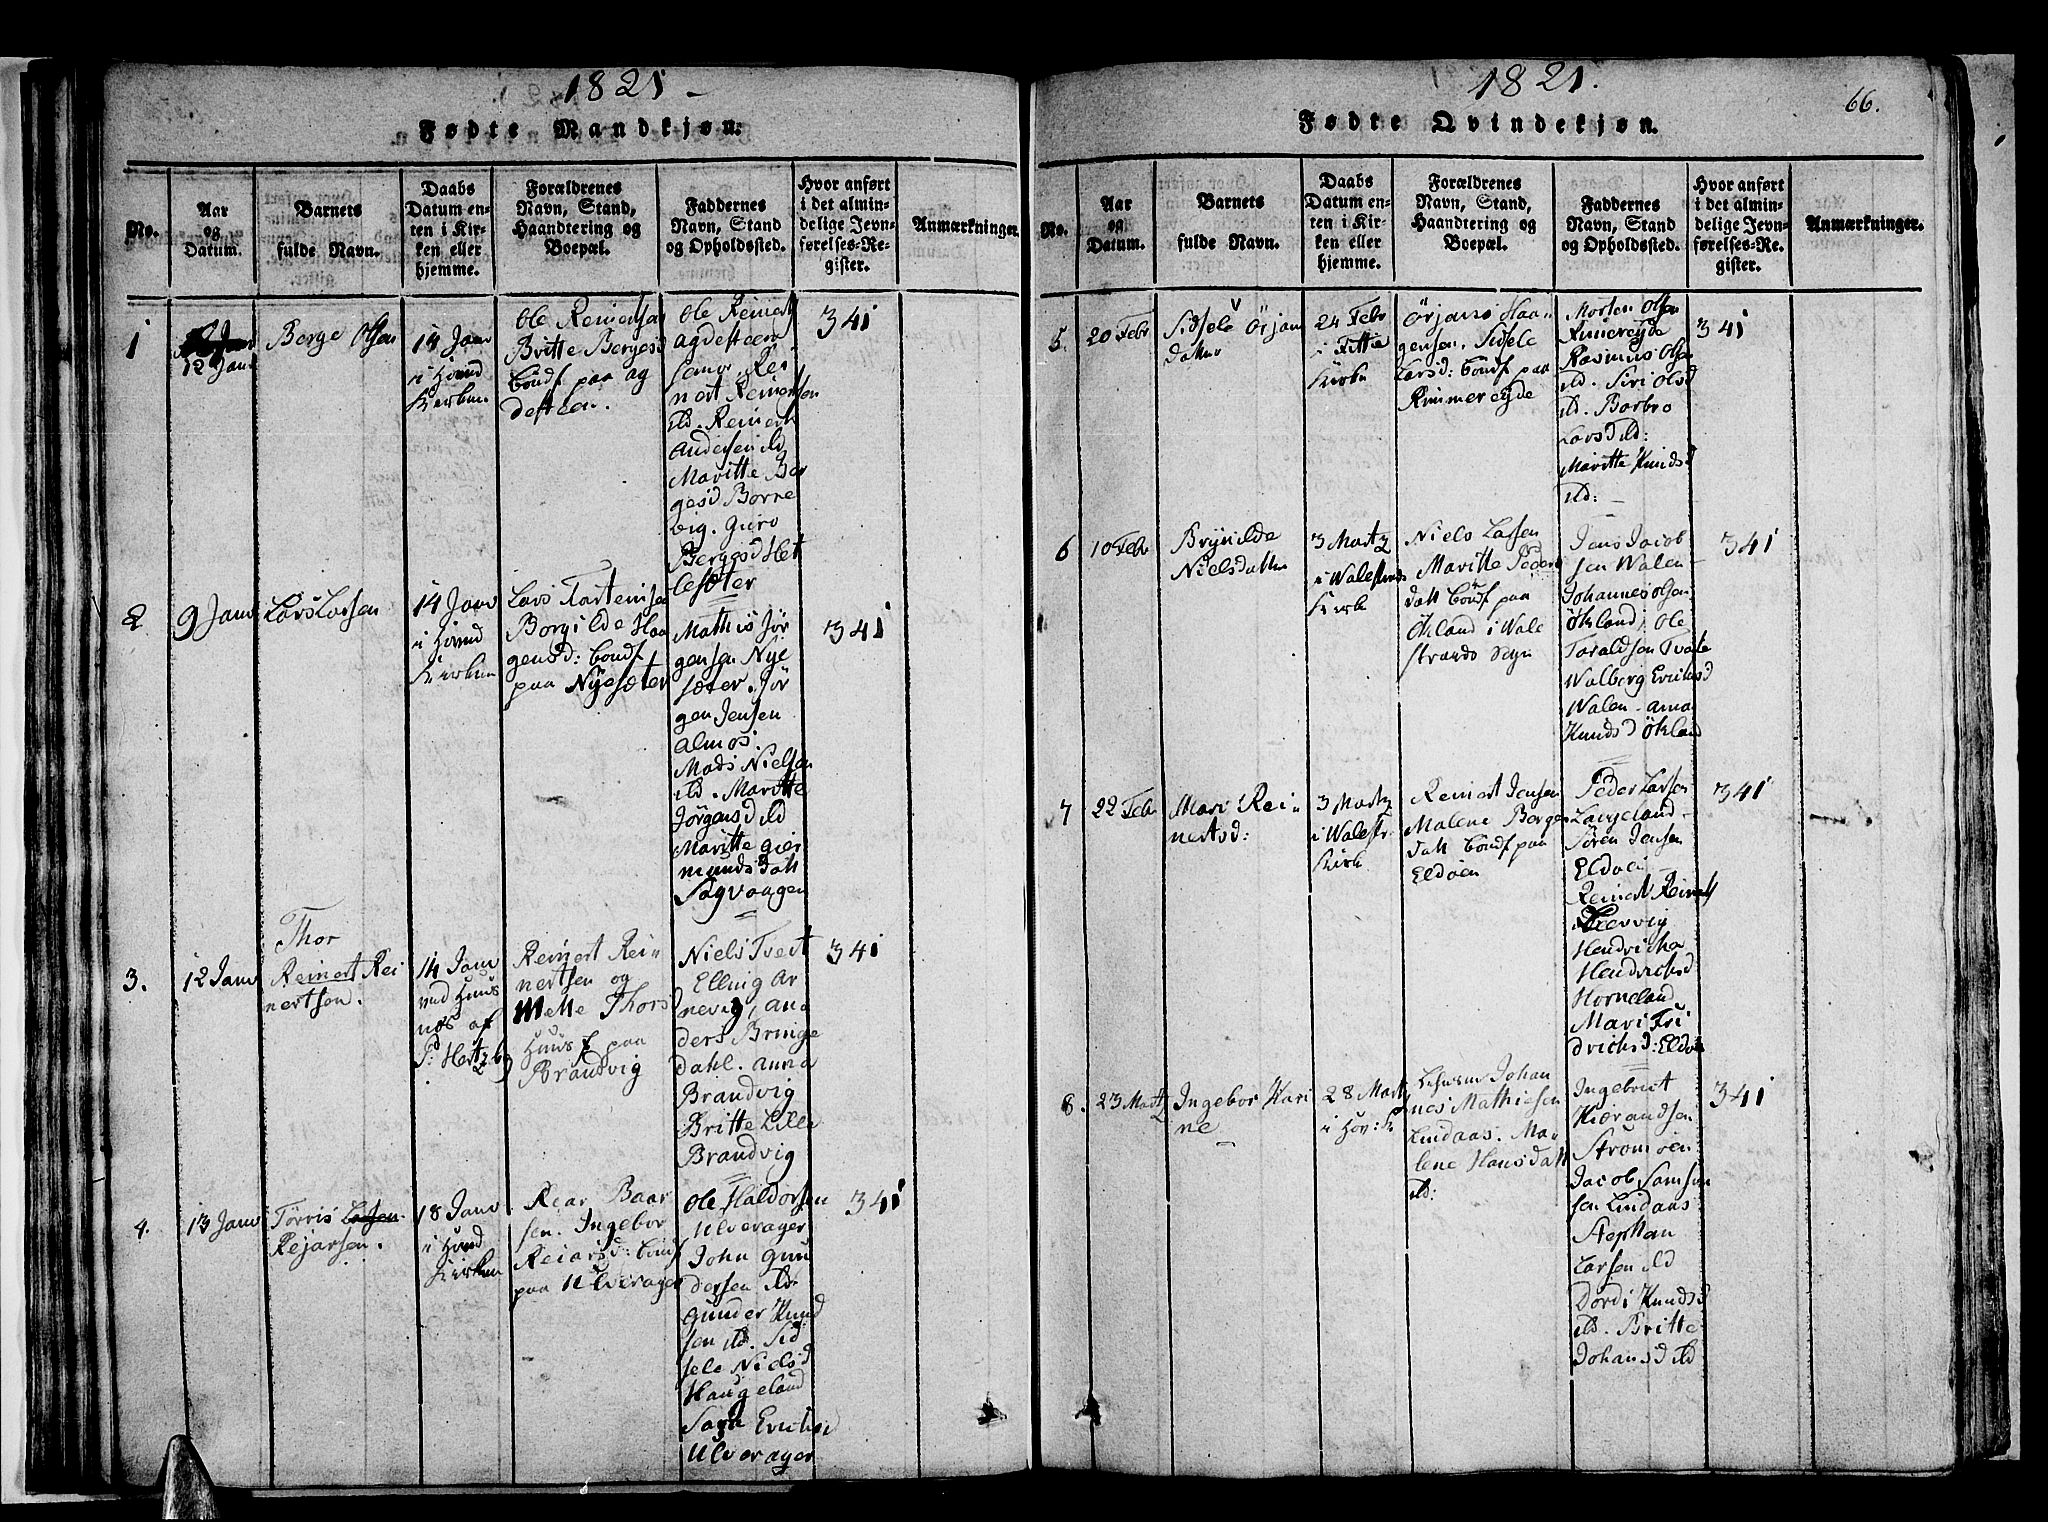 1821 -
Fødte Mandkjøn.
No.
Aar
og
Datum.
Barnets
fulde Navn.
Daabs
Datum en-
ten i Kir-
ken eller
hjemme.
Forældrenes
Navn, Stand,
Haandtering og
Boepæl.
Faddernes
Navn, Stand
og Opholdssted.
Hvor anført
i det almin-
delige Jevn-
førelses-Re-
gister.
Anmærkninger.
1
12 Janv
Berge Olsen
14 Janv
i Hovud
Kirken
Ole Reinertsen
Britte Bergesd
bondf paa ag
desteen.
Ole Reinerts
agdesteen
samv. Rei
nert Reinertsen
ild. Reinert
Andersen ild
Maritte Ber
gesd Børre
vig. Guro
Bergesd Het
lesæter
341
2
9 Janv
Lars Larsen
14 Janv
i Hovud
Kirken
Lars Tostensen
Borgilde Haa
gensd: bondf
paa Nyesæter
Mathis Jør
gensen Nye
sæter. Jør
gen Jensen
almos.
Mads Nielsen
ild. Maritte
Jørgensd ild
Maritte Gier
munds Datt
Sagvaagen
341
3.
12 Janv
Thor
Reinert Rei
nertsen.
14 Janv
ved Huus
nos af
P: Hertzbg
Reinert Rei-
nertsen og
Mette Thorsd
Huusf paa
Brandvig
Niels Tvert
Elling Ar
nevig, An
ders Bringe
dahl. Anna
Brandvig
Britte Lille
Brandvig
341
4.
13 Janv
Tørris Larsen
Rejarsen.
18 Janv
i Hovud
Kirken
Reiar Baar
sen. Ingebor
Reiarsd: bondf
paa Ulverager
Ole Haldorsen
Ulverager
John Gun
dersen ild
Gunder Knud
sen ild. Sid
sele Nielsd
Haugeland
Sara Erichsd
Ulverager
341
1821.
66.
Fødte Qvindekjøn.
No.
Aar
og
Datum.
Barnets
fulde Navn.
Daabs
Datum en-
ten i Kir-
ken eller
hjemme.
Forældrenes
Navn, Stand,
Haandtering og
Boepæl.
Faddernes
Navn, Stand
og Opholdssted.
Hvor anført
i det almin-
delige Jevn-
førelses-Re-
gister.
Anmærkninger.
5
20 Febr
Sidsele Örjans
datter
24 Febr
i Fittie
Kirke
Örjans Haa-
gensen. Sidsele
Larsd: bondf paa
Rimmereyde
Morten Olsen
Rimereyde
Rasmus Olsen
ild. Siri Olsd
ild. Barbro
Larsd ild:
Maritte Knudsd
ild: -
341
6
10 Febr
Brynilde
Nielsdatter
3 Martz
i Walestrands
Kirke
Niels Larsen
Maritte Peders
datt bondf paa
Ökland i Wale
strands Sogn
Jens Jacob
sen Walen
Johannes Olsen
Ökland, Ole
Taraldsen Tvete
Walberg Erichsd
Walen - Anna
Knudsd Ökland
341
7
22 Febr
Mari Rei-
nertsd:
3 Martz
i Walestr
Kirke
Reinert Jensen
Malene Berges
datt bondf paa
Eldøen
Peder Larsen
Langeland -
Søren Jensen
Eldøen
Reinert Reinerts
Leervig
Hendricha
Hendrichsd
Horneland
Mari Fri
drichsd: Eldøen
341
8.
23 Martz
Ingebor Kari
ne
28 Martz
i Hov: K
Johan
nes Mathiesen
Lindaas. Ma-
lene Hansdatt
ild:
Ingebrict
Kiærandsen
Strømøen
Jacob Samson
sen Lindaas
Stephan
Larsen ild
Dordi Knudsd
ild. Britte
Johansd ild
341